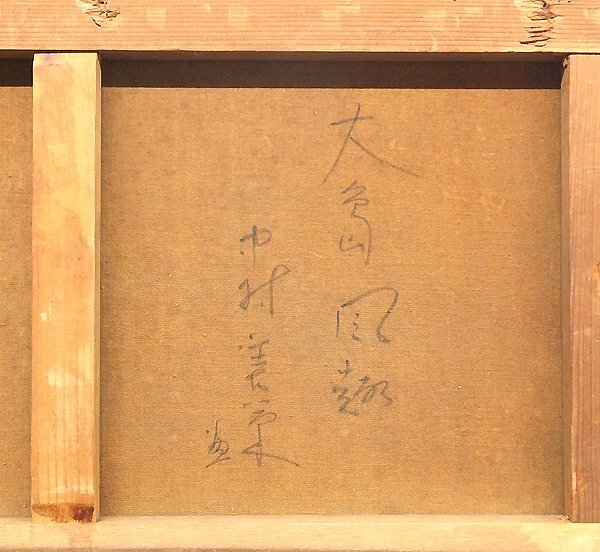 大島風趣
中村善策
画